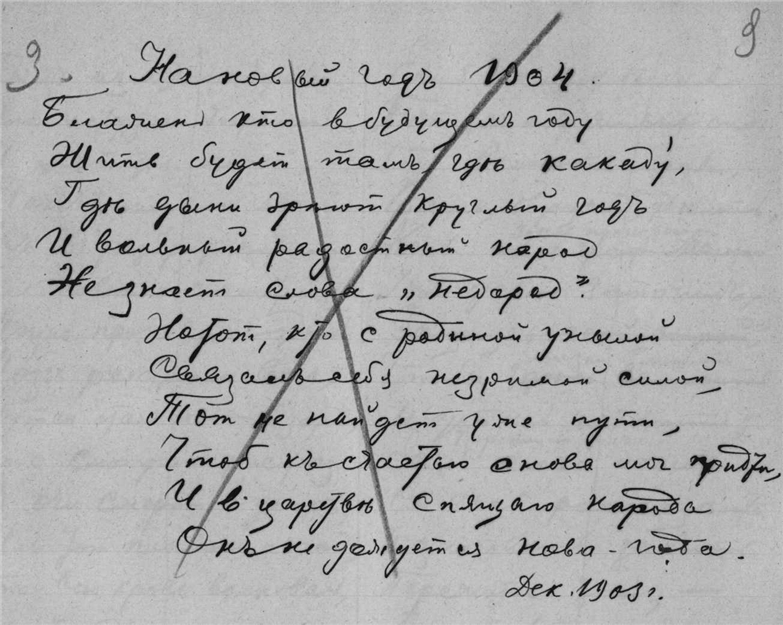 9
9
На новый годъ 1904.
Блаженъ кто в будущемъ году
Жить будет тамъ, гдѣ какаду,
Гдѣ дыни зрѣют круглый годъ
И вольный радостный народ
Не знает слова „недород".
Но тот, кто с родиной унылой
Связалъ себя незримой силой,
Тот не найдет уже пути,
Чтоб къ счастью снова мог придти,
И в царствѣ спящаго народа
Онъ не дождется нова-года.
Дек. 1903 г.